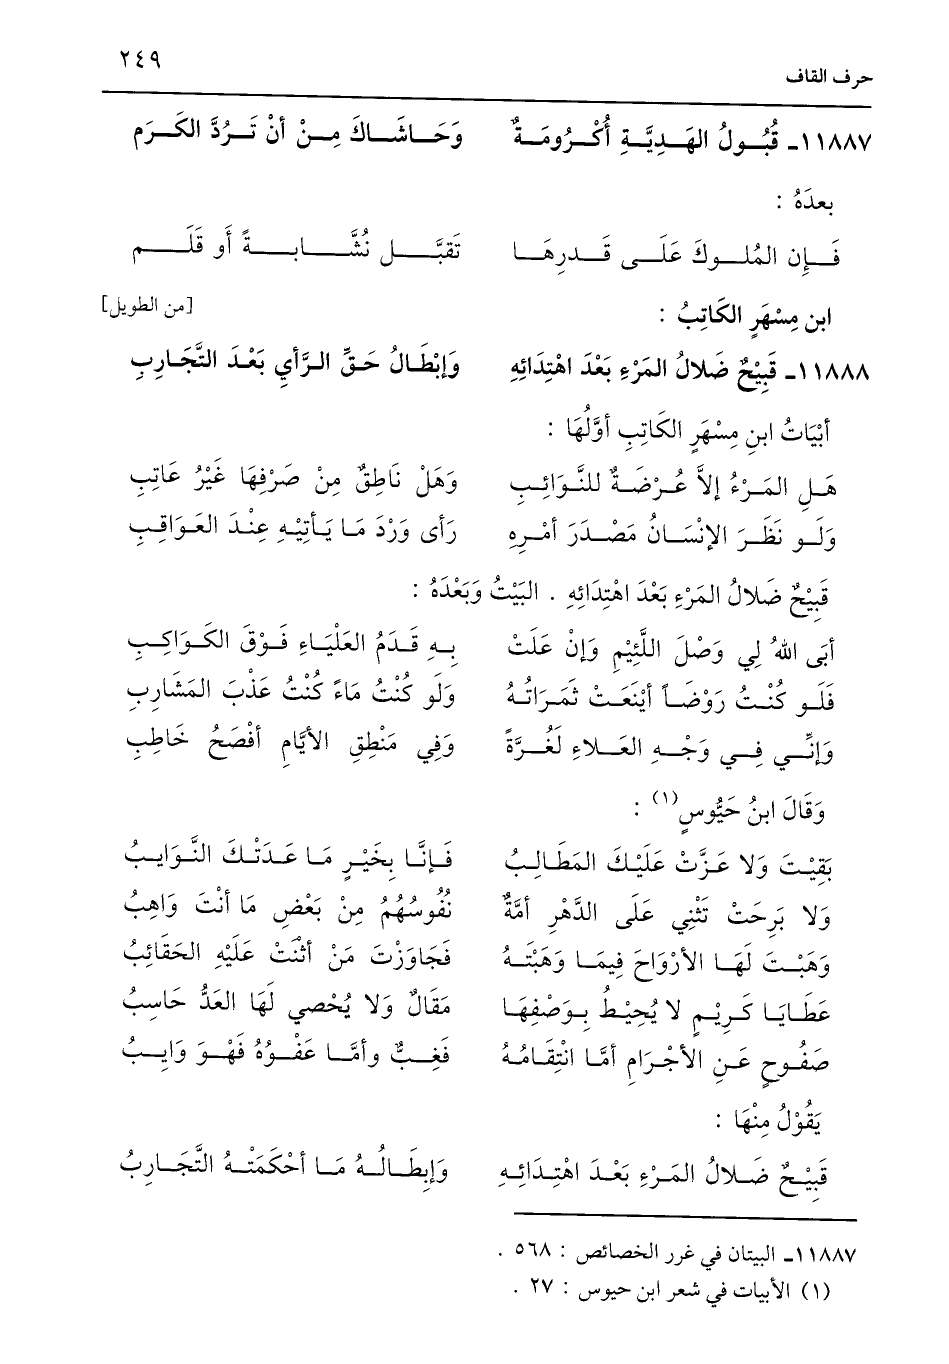 حرف القاف ٢٤٩
١١٨٨٧ـ قُبُولُ الهَدِيَّةِ أُكْرُومَةٌ وَحَاشَاكَ مِنْ أنْ تَرُدَّ الكَرَم
بعدَهُ :
فَإن المُلوكَ عَلَى قَدرِهَا تَقبَّل نُشَّابةً أو قَلَم
ابن مِسْهَرٍ الكَاتِبُ : [من الطويل]
١١٨٨٨ـ قَبِيْحٌ ضَلالُ المَرْءِ بَعْدَ اهْتِدَائِهِ وَإبْطَالُ حَقِّ الرَّأيِ بَعْدَ التَّجَارِبِ
أبْيَاتُ ابنِ مِسْهَرٍ الكَاتِبِ أوَّلُهَا :
هَلِ المَرْءُ إلاَّ عُرْضَةٌ للنَّوائِبِ وَهَلْ نَاطِقٌ مِنْ صَرْفِهَا غَيْرُ عَاتِبِ
وَلَو نَظَرَ الإنْسَانُ مَصْدَرَ أمْرِهِ رَأى وَرْدَ مَا يَأتِيْهِ عِنْدَ العَوَاقِبِ
قَبِيْحٌ ضَلالُ المَرْءِ بَعْدَ اهْتِدَائِهِ . البَيْتُ وَبَعْدَهُ :
أبَى اللهُ لِي وَصْلَ اللَّئِيْمِ وَإنْ عَلَتْ بِهِ قَدَمُ العَلْيَاءِ فَوْقَ الكَواكِبِ
فَلَو كُنْتُ رَوْضَاً أيْنَعَتْ ثَمَرَاتُهُ وَلَو كُنْتُ مَاءً كُنْتُ عَذْبَ المَشَارِبِ
وَإنِّي فِي وَجْهِ العَلاءِ لَغُرَّةً وَفِي مَنْطِقِ الأيَّامِ أفْصَحُ خَاطِبِ
وَقَالَ ابنُ حَيُّوسٍ(١) :
بَقِيْتَ وَلا عَزَّتْ عَلَيْكَ المَطَالِبُ فَإنَّا بِخَيْرٍ مَا عَدَتْكَ النَّوَايبُ
وَلا بَرِحَتْ تَثْنِي عَلَى الدَّهْرِ أمَّةٌ نُفُوسُهُمُ مِنْ بَعْضِ مَا أنْتَ وَاهِبُ
وَهَبْتَ لَهَا الأرْوَاحَ فِيمَا وَهَبْتَهُ فَجَاوَزْتَ مَنْ أثْنَتْ عَلَيْهِ الحَقَائبُ
عَطَايَا كَرِيْمٍ لا يُحِيْطُ بِوَصْفِهَا مَقَالٌ وَلا يُحْصِي لَهَا العَدُّ حَاسِبُ
صَفُوحٍ عَنِ الأجْرَامِ أمَّا انْتِقَامُهُ فَغِبٌّ وأمَّا عَفْوُهُ فَهْوَ وَايِبُ
يَقُوْلُ مِنْهَا :
قَبِيْحٌ ضَلالُ المَرْءِ بَعْدَ اهْتِدَائِهِ وَإبطَالُهُ مَا أحْكَمَتْهُ التَّجَارِبُ
١١٨٨٧ـ البيتان في غرر الخصائص : ٥٦٨ .
(١) الأبيات في شعر ابن حيوس : ٢٧ .